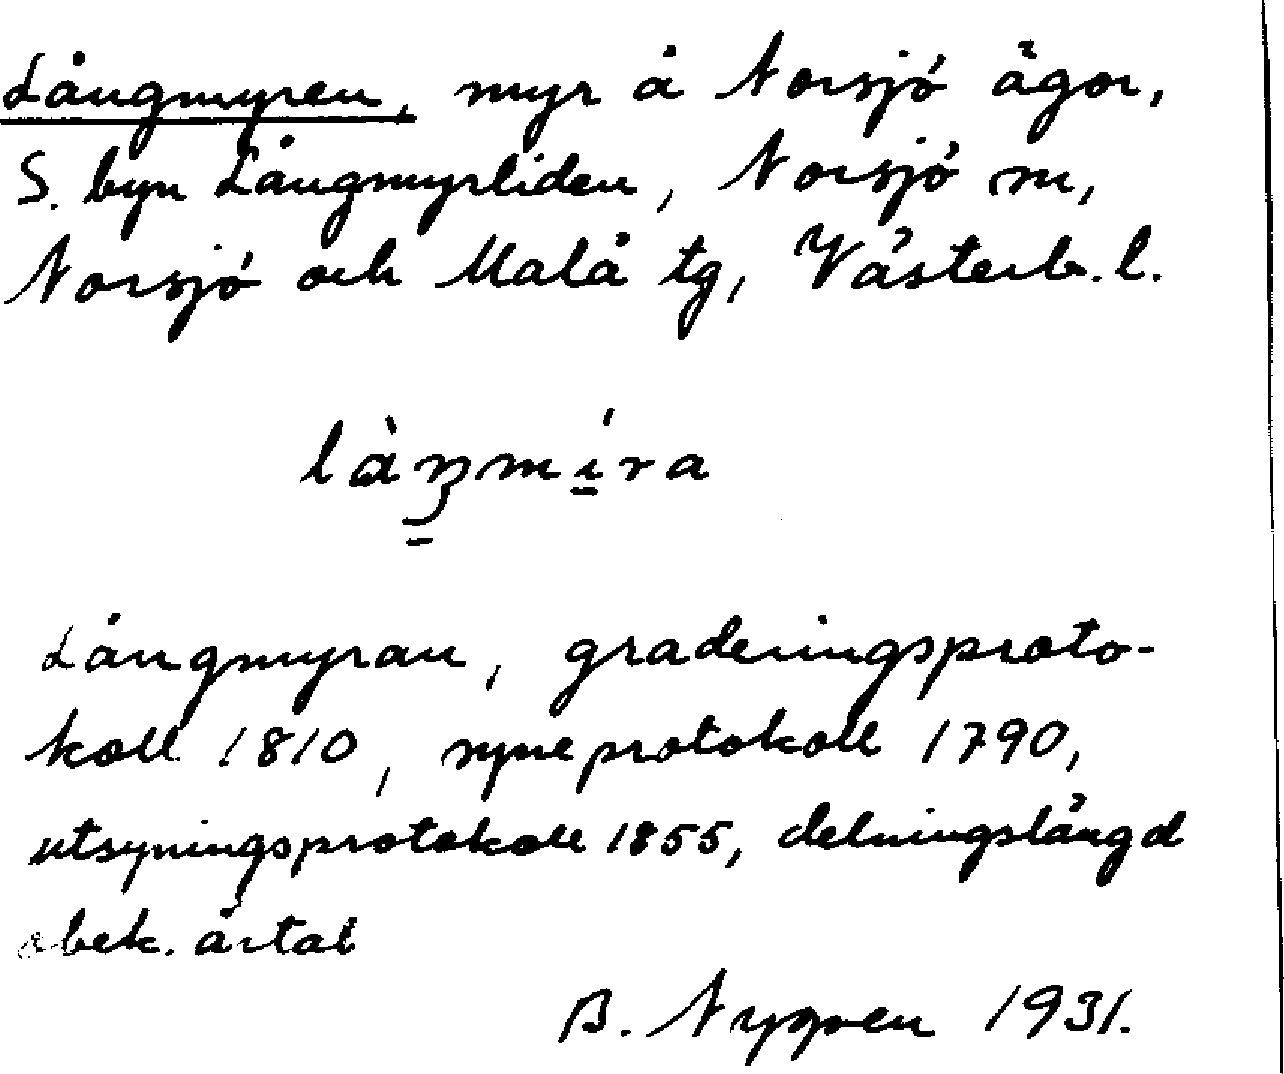 Långmyren, myr å Norsjö ägor,
S. byn Långmyrliden, Norsjö sn,
Norsjö och Malå tg, Västerb. l.
Långmyran, graderingsproto-
koll 1810, syneprotokoll 1790,
utsyningsprotokoll 1855, delningslängd
obek. årtal
B. Nygren 1931.